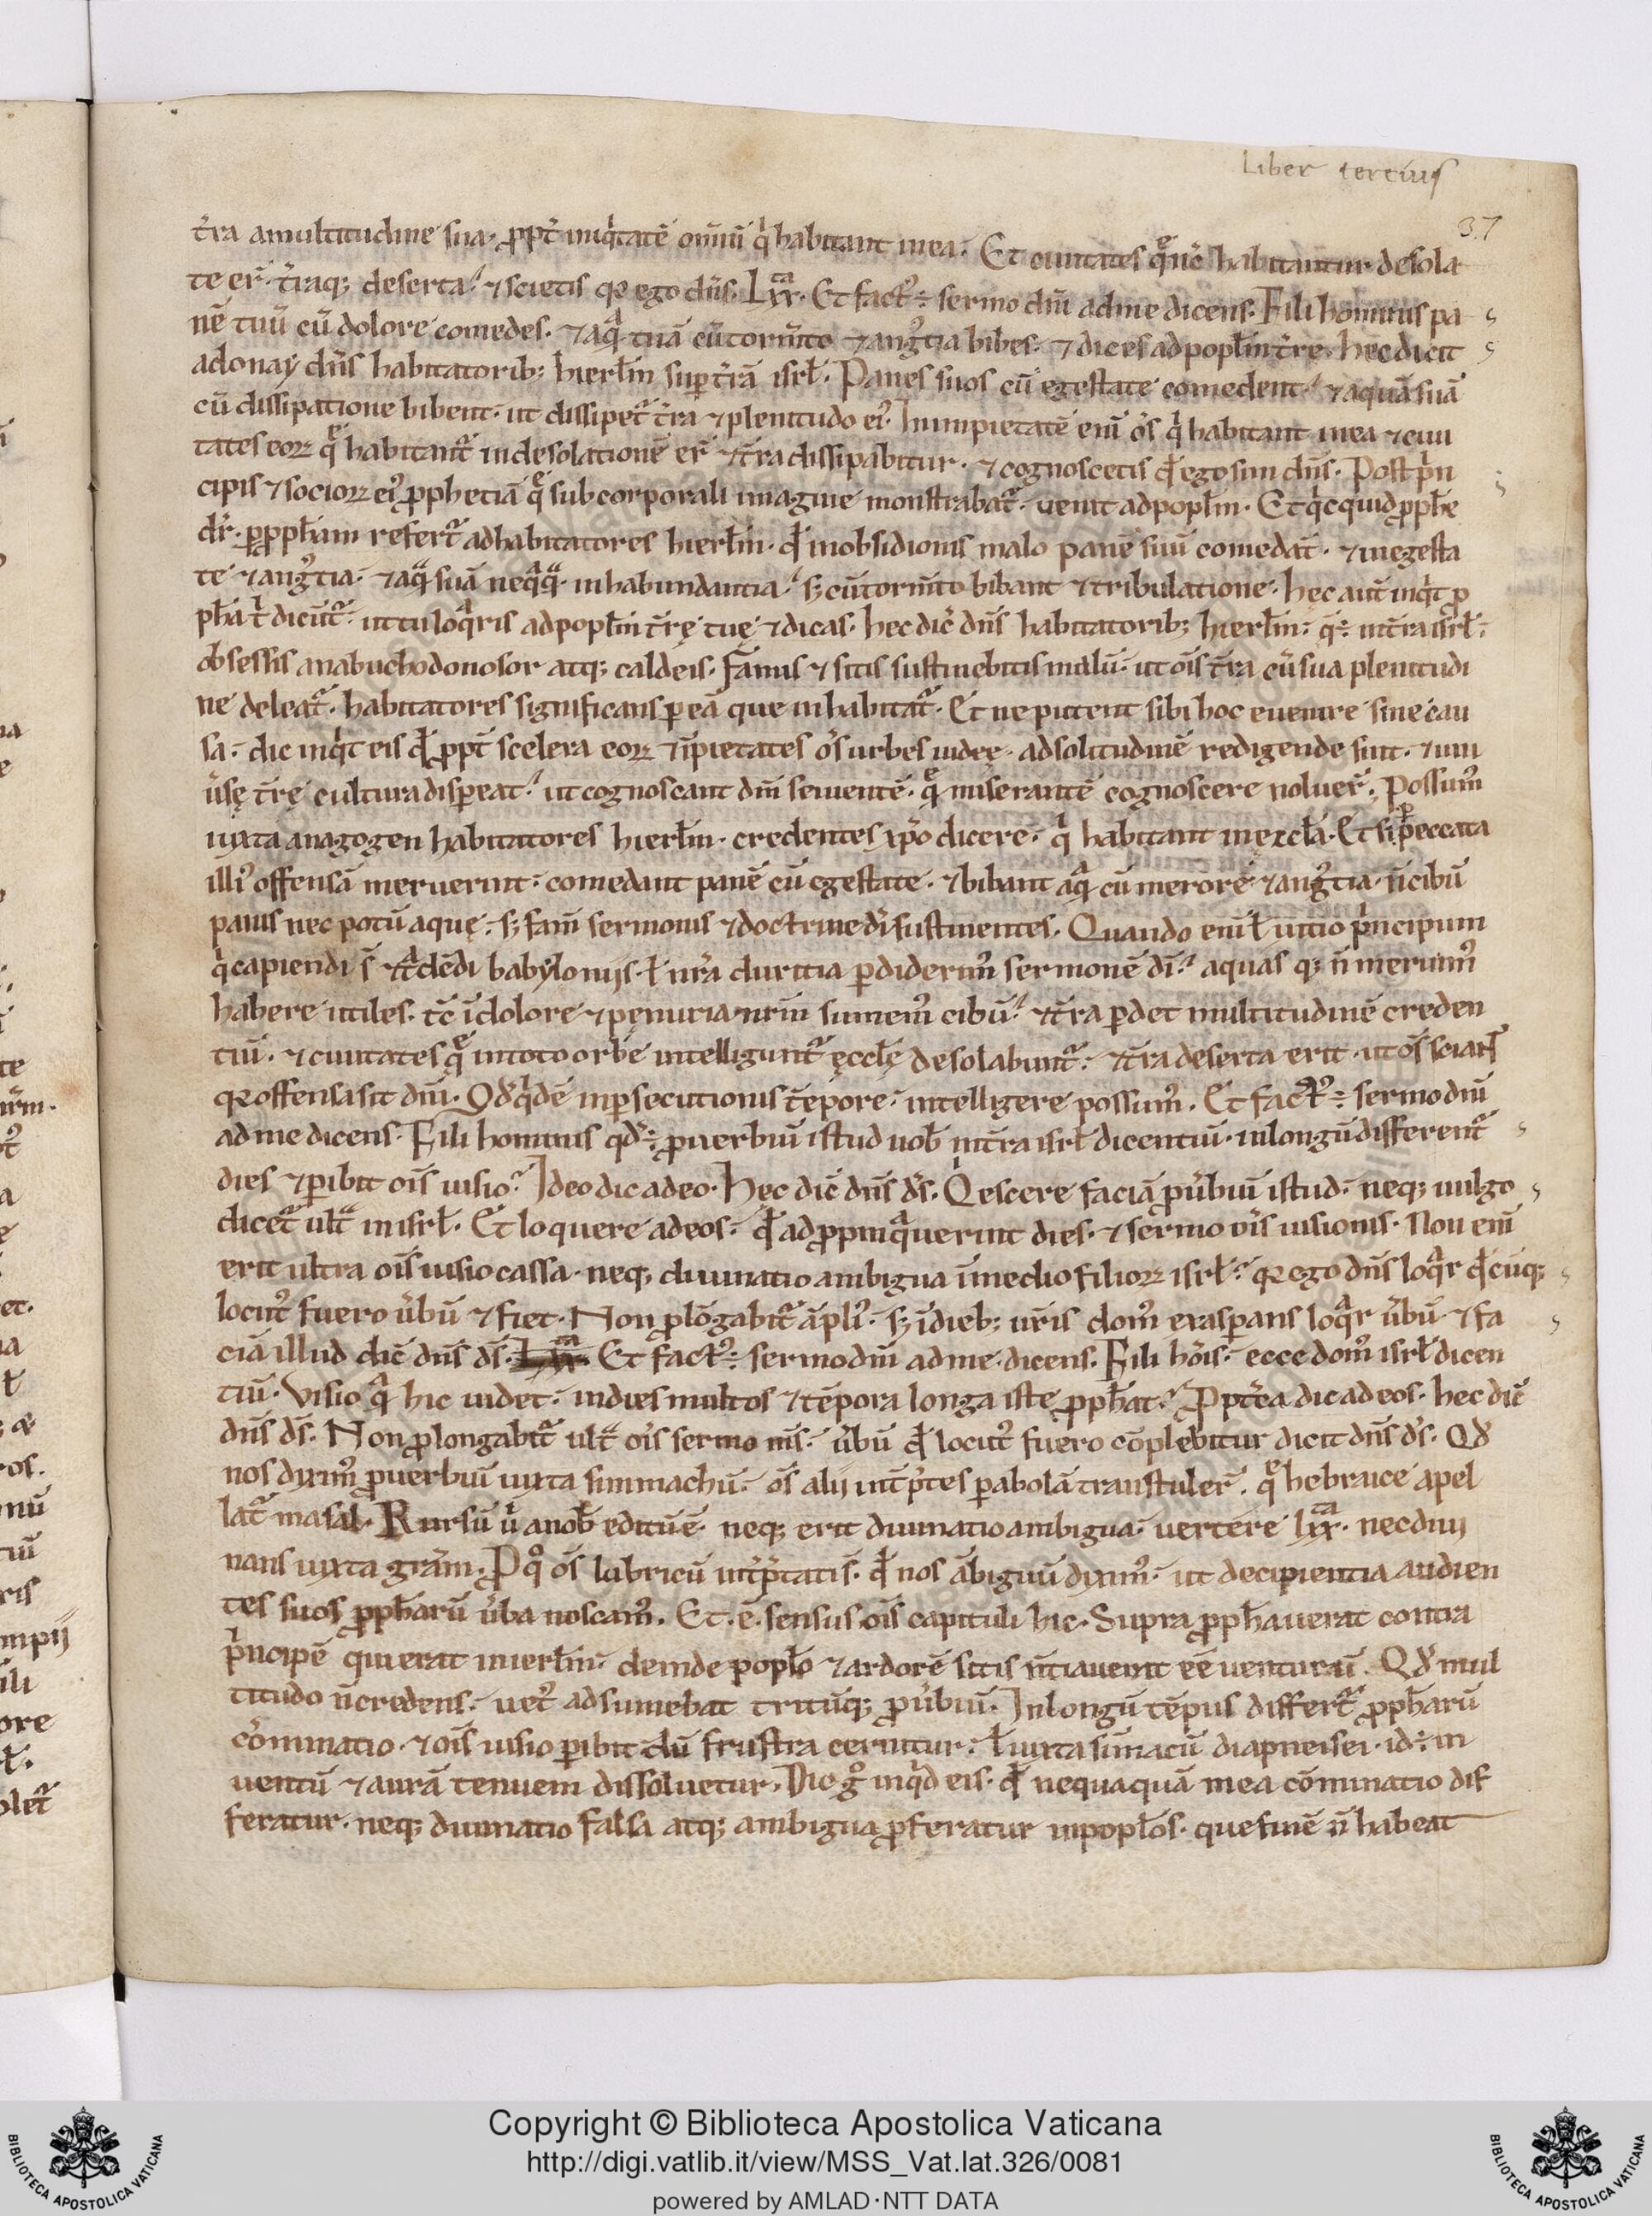 Liber tercius
37
t̄ra amultitudine sua. ꝓpt̄ iniqͥtatē om̄iū qͥ habitant in ea. Et ciuitates qͤ nūc habitantur desola
te er̄. t̄raq; deserta. ⁊ scietis qꝛ ego dn̄s. Lxxᵗᵃ. Et factꝰ ÷ sermo dn̄i adme dicens. Fili hominis pa
nē tuū cū dolore comedes. ⁊ aqͣ tuā cū torm̄to ⁊ angꝰtia bibes. ⁊ dices ad popłm t̄re. hec dicit
adonay dn̄s habitatorib; hierłm suꝑ t̄rā isrł. Panes suos cū egestate comedent. ⁊ aquā suā
cū dissipatione bibent. ut dissipet᷑ t̄ra ⁊ plenitudo eiꝰ. In impietatē eni᷑ om̄s qͥ habitant in ea ⁊ ciui
tates eoꝝ qͤ habitant᷑ in desolationē er̄ ⁊ t̄ra dissipabitur. ⁊ cognoscetis qđ ego sum dn̄s. Post pͥn
cipis ⁊ socioꝝ eiꝰ ꝓphetiā qͤ sub corporali imagine monstrabat᷑. uenit ad popłm. Et qͥcquid ꝓphe
dr̄. ꝑ ꝓpħam refert᷑ ad habitatores hierłm. qđ in obsidionis malo panē suū comedāt. ⁊ in egesta
te ⁊ angꝰtia. ⁊ aqͣ suā neqͣqͣ. in habundantia. s; cū torm̄to bibant ⁊ tribulatione. hec aut̄ inqͥt ꝓ
pħa t̄ dicūt᷑. ut tu loqͣris ad popłm t̄rę tuę ⁊ dicas. hec dic̄ dn̄s habitatorib; hierłm. q̄ ÷ in t̄ra isrł.
obsessis a nabuchodonosor atq; caldeis. Famis ⁊ sitis sustinebitis malū. ut om̄s t̄ra cū sua plenitudi
ne deleat᷑. habitatores significans ꝑ eā que inhabitat᷑. Et ne putent sibi hoc euenire sine cau
sa. dic inqͥt eis qđ ꝓpt̄ scelera eoꝝ ⁊ īpietates om̄s urbes iudeę. ad solitudinē redigende sint. ⁊ uni
ūsę t̄rę cultura disꝑeat. ut cognoscant dn̄m seuientē. qͤ miserantē cognoscere noluer̄. Possumꝰ
iuxta anagogen habitatores hierłm. credentes xp̄o dicere. qͥ habitant in ęccłā. Et si ꝓpt̄ peccata
illiꝰ offensā meruerint. comedant panē cū egestate. ⁊ bibant aqͣ cū merore ⁊ angꝰtia. n̄ cibū
panis nec potū aquę. s; famē sermonis ⁊ doctrine di᷑ sustinentes. Quando eni᷑ ł uitio pͥncipum
qͥ capiendi s̄ ⁊ tͣdēdi babyloniis. ł nr̄a duritia ꝑdiderimꝰ sermonē dī. aquas q; n̄ merimꝰ
habere utiles. tc̄ ī dolore ⁊ pęnuria nr̄m sumemꝰ cibū. ⁊ t̄ra ꝑdet multitudinē creden
tiū. ⁊ ciuitates qͤ in toto orbe intelligunt᷑ ęccłę desolabunt᷑. ⁊ t̄ra deserta erit. ut om̄s sciant
qꝛ offensa sit dn̄i. Qđ qͥdē in ꝑsecutionis tēpore. intelligere possumꝰ. Et factꝰ ÷ sermo dn̄i
ad me dicens. Fili hominis qđ ÷ ꝓuerbiū istud uob̄ in t̄ra isrł dicentiū. in longū different᷑
dies ⁊ ꝑibit om̄s uisio. Ideo dic ad eos. Hęc dic̄ dn̄s ds̄. Qͥescere faciā ꝓūbiū istud. neq; uulgo
dicet᷑ ult᷑ in isrł. Et loquere ad eos. qđ adꝓpinqͣuerint dies. ⁊ sermo om̄s uisionis. Non eni᷑
erit ultra om̄s uisio cassa. neq; diuinatio ambigua ī medio filioꝝ isrł. qꝛ ego dn̄s loqͣr qđcūq;
locutꝰ fuero ūbū ⁊ fiet. Non ꝓlōgabit᷑ āpliꝰ. s; ī dieb; ur̄is domꝰ exasꝑans loqͣr ūbū. ⁊ fa
ciā illud dic̄ dn̄s ds̄. Lxxᵗᵃ. Et factꝰ ÷ sermo dn̄i ad me dicens. Fili hōis. ecce domꝰ isrł dicen
tiū. Visio qͣ hic uidet. in dies multos ⁊ tēpora longa iste ꝓpħat. Ꝓpt̄ea dic ad eos. hec dic̄
dn̄s ds̄. Non ꝓlongabit᷑ ult᷑ om̄s sermo ms̄. ūbū qđ locutꝰ fuero cōplebitur dicit dn̄s ds̄. Qđ
nos diximꝰ ꝓuerbiū iuxta simmachū. om̄s alij int̄p̄tes ꝑabolā transtuler̄. qͤ hebraice apel
lat᷑ masal. Rursū ū a nob̄ editū ē. neq; erit diuinatio ambigua. uertere lxxᵗᵃ. nec diui
nans iuxta grām. Ꝓ qͦ om̄s lubricū int̄p̄tatis̄. qđ nos ābiguū diximꝰ. ut decipientia audien
tes suos ꝓpħarū ūba noscamꝰ. Et. ē. sensus om̄s capituli hic. Supra ꝓpħauerat contra
pͥncipē qui erat in ierłm. deinde popło ⁊ ardorē sitis nūtiauerit ēe uenturū. Qđ mul
titudo n̄ credens. uetꝰ adsumebat tritūq; ꝓūbiū. In longū tēpus differt᷑ ꝓpħarū
cōminatio. ⁊ om̄s uisio ꝑibit dū frustra cernitur. ł iuxta simacū diapneisei. id ÷ in
uentū ⁊ aurā tenuem dissoluetur. Dic gͦ inqͥd eis. qđ nequaquā mea cōminatio dif
feratur. neq; diuinatio falsa atq; ambigua ꝓferatur in popłos. que finē n̄ habeat
Copyright © Biblioteca Apostolica Vaticana
http://digi.vatlib.it/view/MSS_Vat.lat.326/0081
powered by AMLAD·NTT DATA
BIBLIOTECA APOSTOLICA VATICANA
BIBLIOTECA APOSTOLICA VATICANA